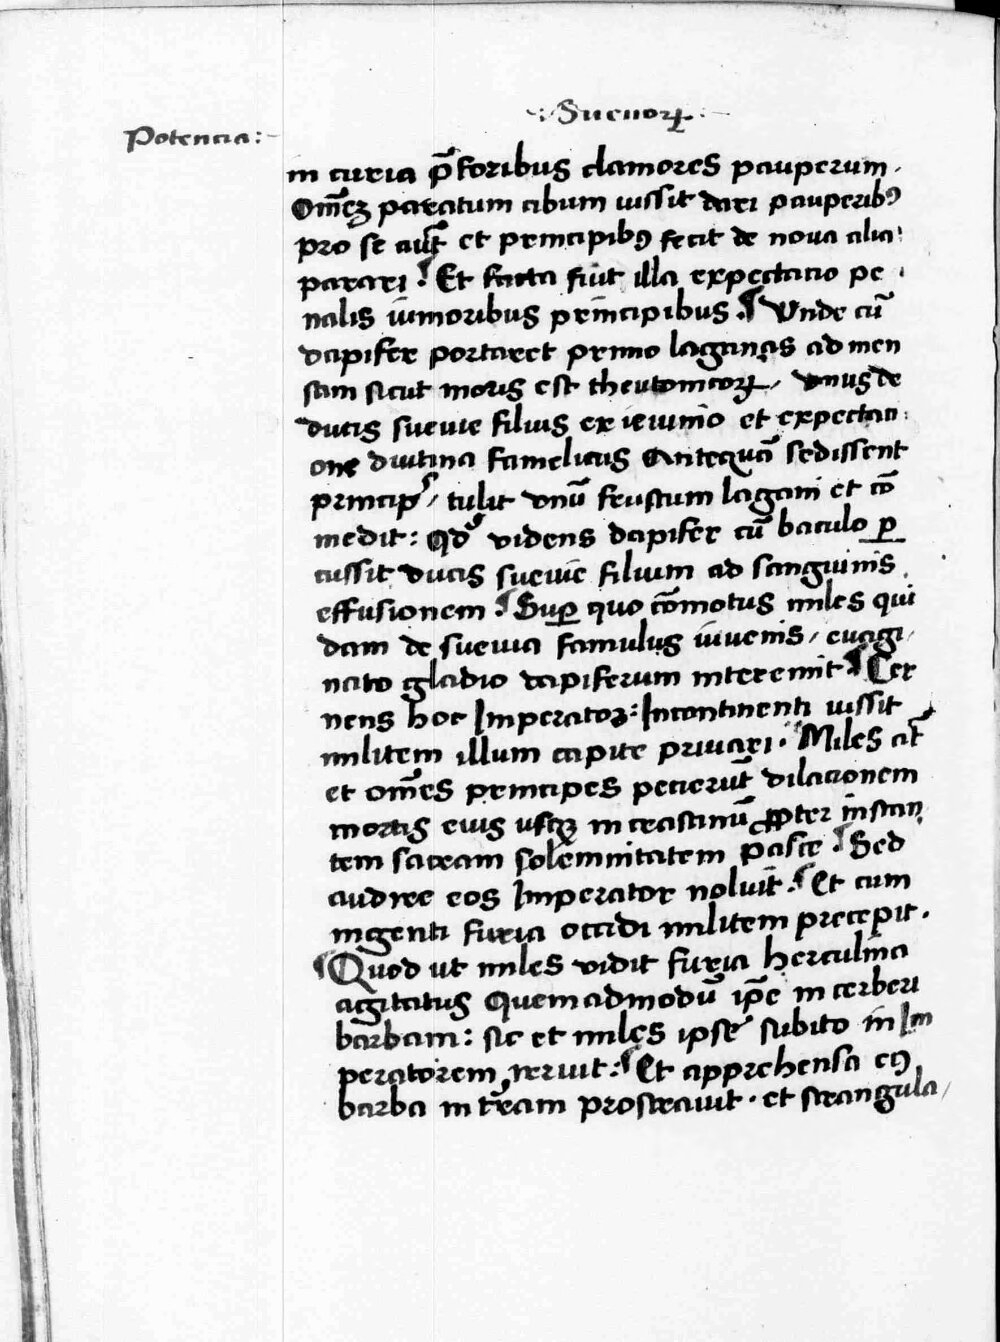 ·: Sueuoꝝ :·
Potencia :-
in curia p̄ foribus clamores pauperum ·
Om̄eʒ paratum cibum iussit dari pauperibꝰ
pro se aūt et principibꝰ fecit de noua alia
parari · Et facta fuit illa expectatio pe
nalis iunioribus principibus · Vnde cū
dapifer portaret primo laganas ad men
sam sicut moris est theutonicoꝝ / vnus de
ducis sueuie filius ex ieiunio et expectati
one diutina famelicus Antequā sedissent
princip̄ / tulit vnū frustum lagani et cō
medit : Qd̓ videns dapifer cū baculo ꝑ
cussit ducis sueuie filium ad sanguinis
effusionem · Suꝑ quo cōmotus miles qui
dam de sueuia famulus iuuenis / euagi
nato gladio dapiferum interemit · Cer
nens hoc Imperator : Incontinenti iussit
militem illum capite priuari · Miles aūt
et om̄es principes pecierūt dilacionem
mortis eius vsqꝫ in crastinū ꝓpter instan
tem sacram solemnitatem pasce · Sed
audire eos Imperator noluit · Et cum
ingenti furia occidi militem precepit ·
Quod ut miles vidit furia herculina
agitatus Quemadmodū ip̄e in cerberi
barbam : sic et miles ipse subito in Im
peratorem irruit · Et apprehensa eiꝰ
barba in tr̄am prostrauit · et strangula /